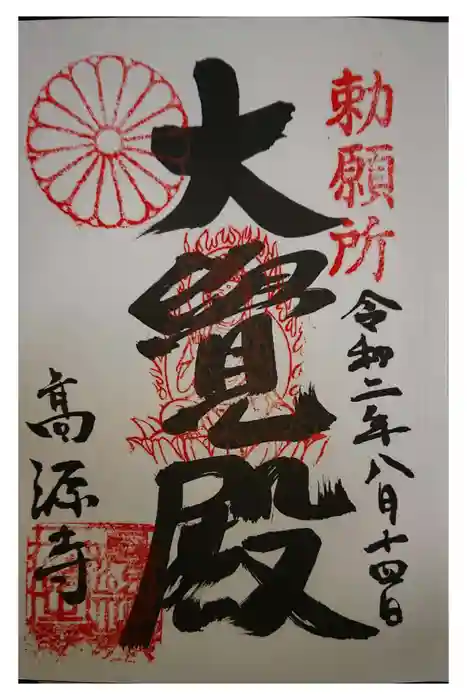 勅願所
令和二年八月十四日
大覺殿
高源寺